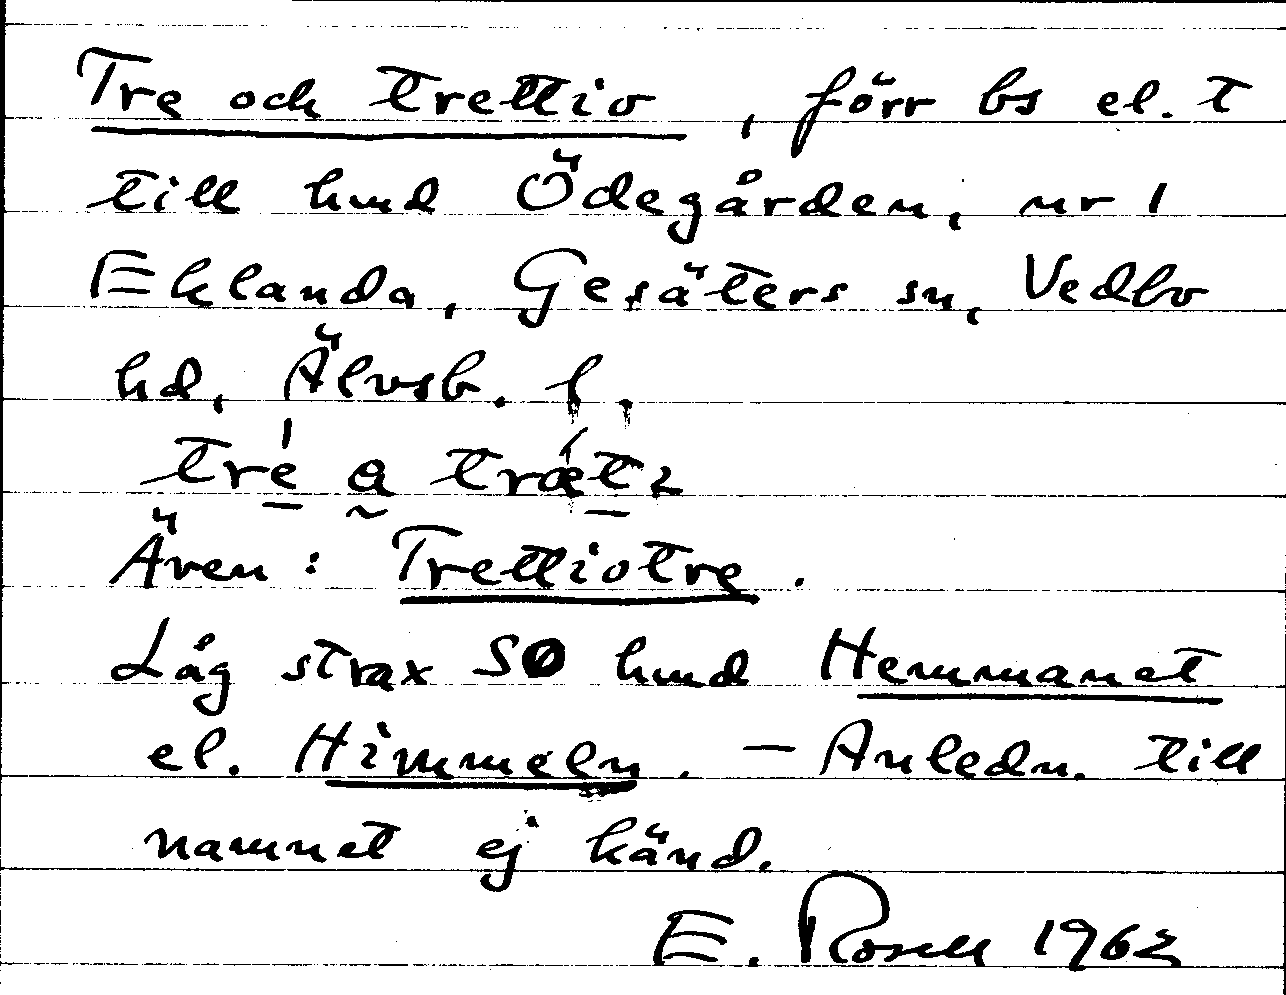 Tre och trettio, förr bs el. t
till hmd Ödegården, nr 1
Eklanda, Gesäters sn, Vedbo
hd, Älvsb. l.
tré a trǽt2
Även: Trettiotre.
Låg strax SO hmd Hemmanet
el. Himmeln. – Anledn. till
namnet ej känd.
E. Rosell 1962